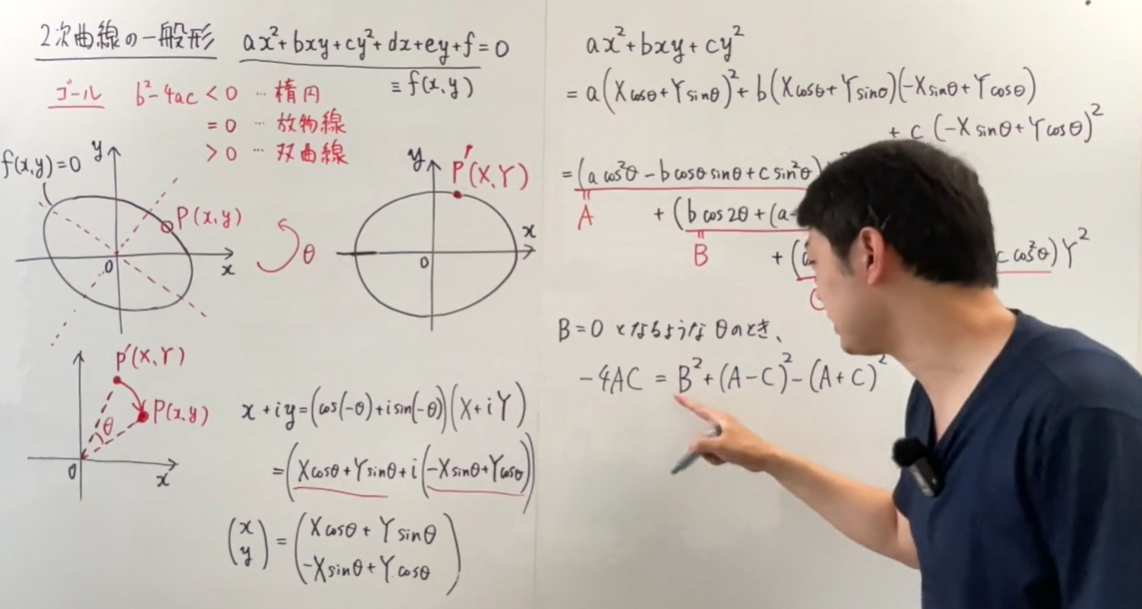 2次曲線の一般形 ax²+bxy+cy²+dx+ey+f=0
≡f(x,y)
ゴール b²-4ac<0 … 楕円
=0 … 放物線
>0 … 双曲線
f(x,y)=0
y
P(x,y)
0
x
θ
y
P'(X,Y)
x
0
P'(X,Y)
P(x,y)
θ
0
x
x+iy=(cos(-θ)+isin(-θ))(X+iY)
=(Xcosθ+Ysinθ+i(-Xsinθ+Ycosθ))
(x y)=(Xcosθ+Ysinθ
-Xsinθ+Ycosθ)
ax²+bxy+cy²
=a(Xcosθ+Ysinθ)²+b(Xcosθ+Ysinθ)(-Xsinθ+Ycosθ)
+c(-Xsinθ+Ycosθ)²
=(a cos²θ-b cosθ sinθ+c sin²θ)
A
+(b cos2θ+(a-
B
+(
c cos²θ)Y²
B=0となるようなθのとき、
-4AC=B²+(A-C)²-(A+C)²